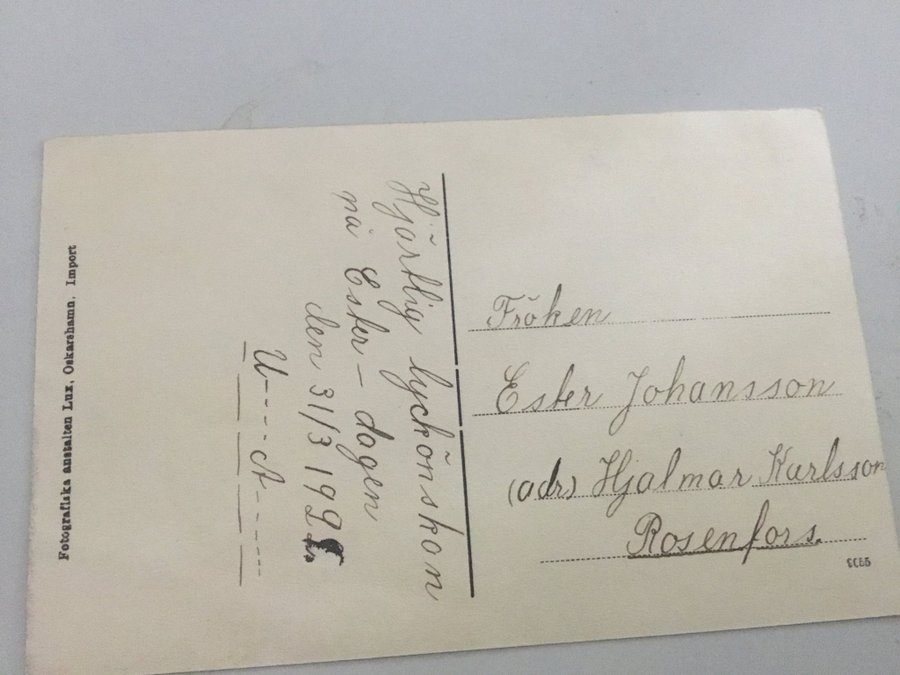 Hjärtlig lyckönskan
på Ester-dagen
den 31/3 192
U---- A-----
Fröken
Ester Johansson
(adr) Hjalmar Karlsson
Rosenfors.
Fotografiska anstalten Lux, Oskarshamn. Import